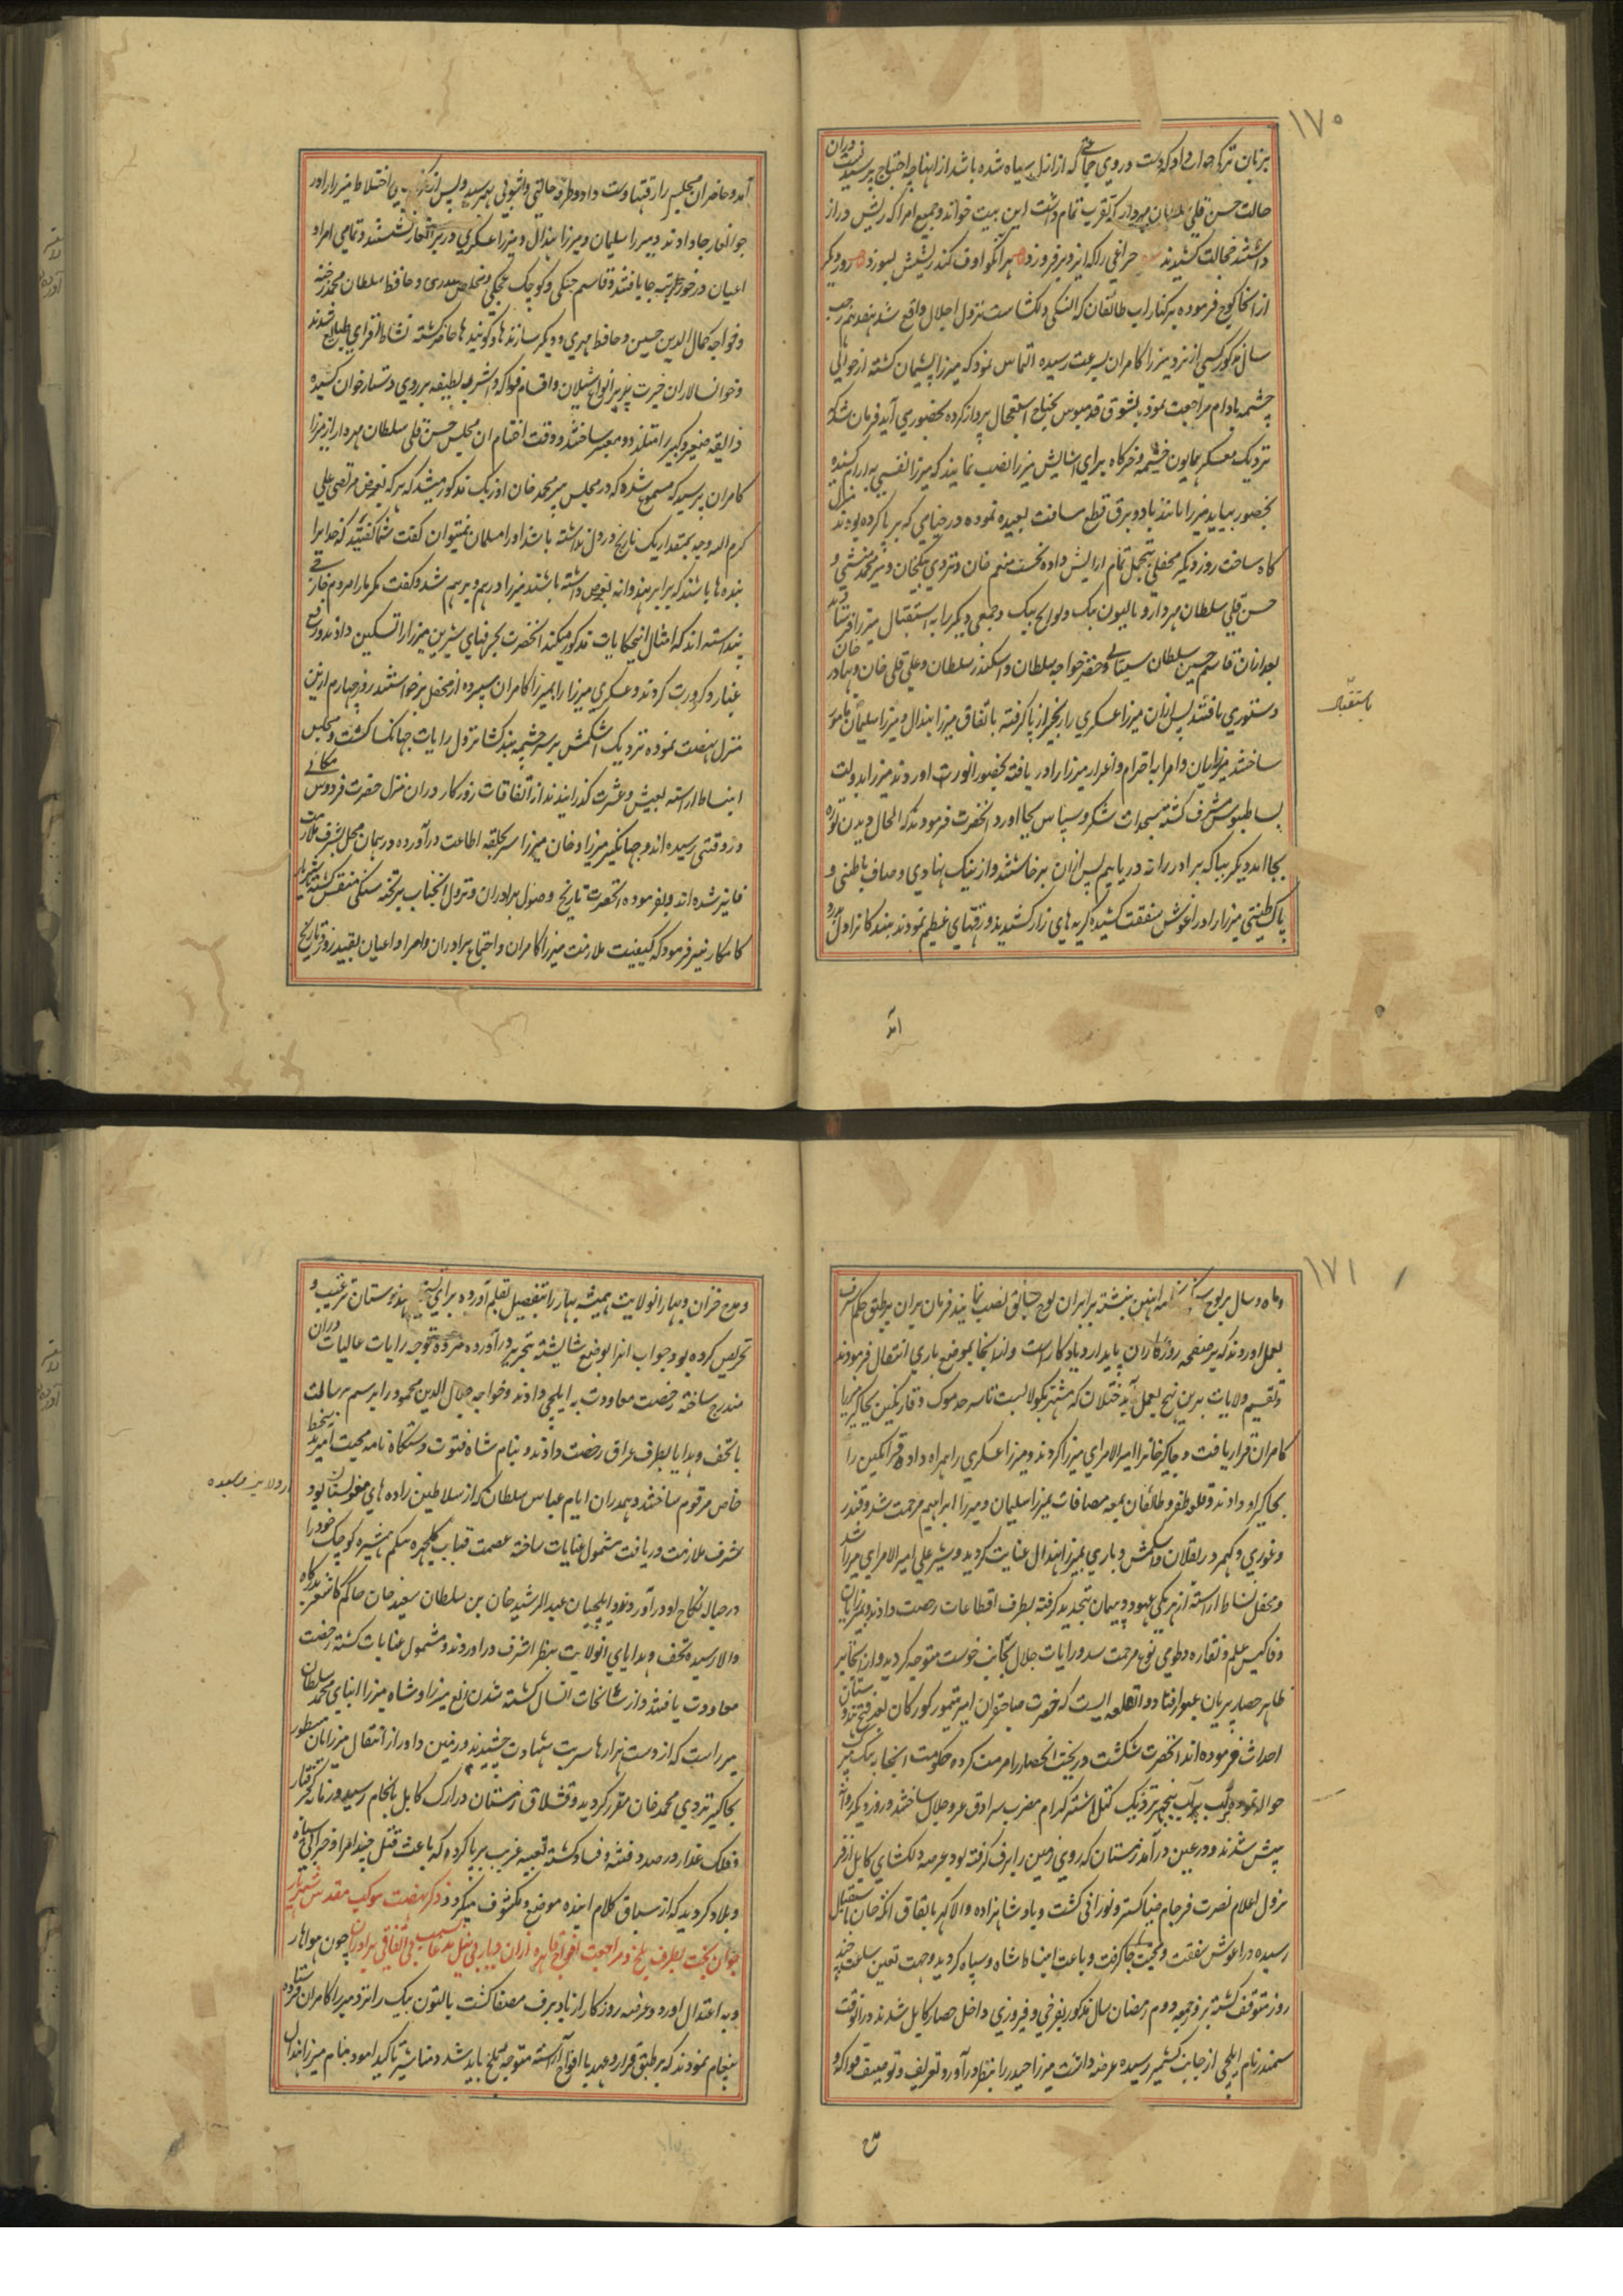 ۱۷۰
بزبان ترکی جواب داد که دست در روی جماعتی که از ازل سیاه شده باشد از اینها چه احتیاج پرسیدنست دران
حالت حسن قلی سلطان مهردار که تقرب تمام داشت این بیت خواند و جمیع امرا که ریش دراز
داشتند خجالت کشیدند چراغی را که ایزد برفروزد هر انکو اوف کند ریشش بسوزد روز دیگر
از انجا کوچ فرموده بر کنار اب طالقان که النکی دلکشاست نزول اجلال واقع شد هفدهم رجب
سال مذکور کسی از نزد میرزا کامران بسرعت رسیده التماس نمود که میرزا پشیمان کشته از حوالی
چشمه بادام مراجعت نمود بشوق قدمبوس بجناح استعجال پرواز کرده بحضور می آید فرمان شد که
نزدیک معسکر همایون خیمه و خرکاه برای اسایش میرزا نصب نمایند که میرزا نفسی به ارام کشیده
بحضور بیاید میرزا مانند باد و برق قطع مسافت بعیده نموده در خیامی که بر پا کرده بودند منزل
کاه ساخت روز دیگر محفلی بتجمل تمام ارایش داده نخست منعم خان و تردی بیک خان و میر محمد منشی و
حسن قلی سلطان مهردار و بالتون بیک و لوالج بیک و جمعی دیگر را به استقبال میرزا فرستادند
بعد ازان قاسم حسین سلطان سیستانی و خضر خواجه سلطان و اسکندر سلطان و علی قلی خان و بهادر خان
دستوری یافتند پس ازان میرزا عسکری را زنجیر از پا گرفته باتفاق میرزا هندال و میرزا سلیمان مامور
باستقبال
ساختند میرزایان و امرا به احترام و اعزاز میرزا را دریافته بحضور انور اوردند میرزا بدولت
بساطبوس مشرف کشته سجدات شکر و سپاس بجا اورد انحضرت فرمودند که الحال دیدن توره
بجا امد دیگر بیا که برادرانه دریابیم پس ازان برخاستند و از نیک نهادی و صاف باطنی و
پاک طینتی میرزا را در اغوش شفقت کشیده گریه های زار کشیدند و رقتهای عظیم نمودند بندگانرا دل بدرد
آمد
آمد و حاضران مجلس را رقتها دست داد و طرفه حالتی و اشوبی بهم رسید و پس از اختلاط میرزا را در
جوانغار جا دادند و میرزا سلیمان و میرزا هندال و میرزا عسکری در برانغار نشستند و تمامی امرا و
اعیان در خور مرتبه جا یافتند و قاسم چنگی و کوچک غجکی و مخلص بدری و حافظ سلطان محمد رخنه
و خواجه کمال الدین حسین و حافظ مهری و دیگر سازندها و گویندها حاضر گشته نشاط افزای طبایع شدند
و خوانسالاران خیرت پذیر انواع شیلان و اقسام فواکه و اشربه لطیفه بر روی دستارخوان کشیده
ذایقه صغیر و کبیر را متلذذ و معبر ساختند در وقت اختتام ان مجلس حسن قلی سلطان مهردار از میرزا
کامران پرسید که مسموع شده که در مجلس پیر محمد خان اوزبک مذکور میشد که هر که بغض مرتضی علی
کرم الله وجهه بمقدار یک نارنج در دل نداشته باشد او را مسلمان نمیتوان گفت شما گفتید که خدایرا
بنده ها باشند که برابر هندوانه بغض داشته باشند میرزا درهم و برهم شد و گفت مگر مارا مردم خارجی
پنداشته اند که امثال اینحکایات مذکور میکند انحضرت بحرفهای شیرین میرزا را تسکین دادند و رفع
غبار و کدورت کردند و عسکری میرزا را بمیرزا کامران سپرده از محفل برخواستند روز چهارم از ین
منزل نهضت نموده نزدیک اشکمش بر سر چشمه بندکشا نزول رایات جهانکشا گشت و مجلس
انبساط اراسته بعیش و عشرت گذرانیدند از اتفاقات روزگار دران منزل حضرت فردوس مکانی
در وقتی رسیده اند و جهانگیر میرزا و خان میرزا سر بحلقه اطاعت درآورده در همان محل بشرف ملازمت
فایز شده اند و بفرموده انحضرت تاریخ وصول برادران و نزول انجناب بر تخته سنگی منقش گشته شهریار
کامکار نیز فرمود که کیفیت ملازمت میرزا کامران و اجتماع برادران و امرا و اعیان بقید روز تاریخ
۱۷۱
و ماه و سال بر لوح بنشته برابر ان لوح سابق نصب نمایند فرمان بران بر طبق حکم اشرف
بعمل اوردند که بر صفحه روزگاران پایدار و یادکار است و از انجا بموضع باری انتقال فرمودند
و تقسیم ولایات بدین نهج بعمل آمد ختلان که مشهور بکولابست تا سرحد موک و قارتکین بجاگیر میرزا
کامران قرار یافت و چاکر خانرا امیر الامرای میرزا کردند و میرزا عسکری را همراه داده قراتکین را
بجاگیر او دادند و قلعه ظفر و طالقان بمعه مضافات بمیرزا سلیمان و میرزا ابراهیم مرحمت شد و قندز
و غوری و کهمرد و بقلان و اشکمش و باری بمیرزا هندال عنایت کردید و شیر علی امیر الامرای میرزا شد
و محفل نشاط اراسته از هر یکی عهود و پیمان بتجدید گرفته بطرف اقطاعات رخصت دادند و میرزایان
و فا کیس علم و نقاره و طومن طوغ مرحمت شد و رایات جلال بجانب خوست متوجه گردید و از انجا بر
ظاهر حصار پریان عبور افتاد و انقلعه ایست که حضرت صاحبقران امیر تیمور گورکان بعد فتح هندوستان
احداث فرموده اند انحضرت شکست و ریخت انحصار را مرمت کرده حکومت انجا به بیک میر
حواله نموده بر لب اب پنجهیر نزدیک کتل اشتر کرام مضرب سرادق عز و جلال ساختند و روز دیگر روانه
پیش شدند و در عین درآمد زمستان که روی زمین را برف گرفته بود عرصه دلکشای کابل از فر
نزول اعلام نصرت فرجام ضیا گستر و نورانی گشت و پادشاهزاده والا گهر باتفاق اتکه خان باستقبال
رسیده در اغوش شفقت و محبت جا گرفت و باعث انبساط شاه و سپاه گردید و جهت تعین ساعت چند
روز متوقف گشته بروز جمعه دوم رمضان سال مذکور بفرخی و فیروزی داخل حصار کابل شدند در انوقت
سمندر نام ایلچی از جانب کشمیر رسیده عرضه داشت میرزا حیدر را بنظر درآورد و تعریف و توصیف فواکه و
مدح
و مدح خزان و بهار انولایت همیشه بهار را بتفصیل بقلم آورده برای هندوستان ترغیب و
تحریص کرده بود جواب انرا بوضع شایسته بتحریر درآورده مژده توجه رایات عالیات دران
مندرج ساخته رخصت معاودت به ایلچی دادند و خواجه جلال الدین محمود را برسم رسالت
با تحف و هدایا بطرف عراق رخصت دادند و بنام شاه فتوت دستگاه نامه محبت آمیز بخط
خاص مرقوم ساختند و بهدران ایام عباس سلطان که از سلاطین زاده های مغولستان بود
شرف ملازمت دریافت مشمول عنایات ساخته عصمت قباب گلچهره بیگم همشیره کوچک خود را
در حباله نکاح او درآوردند و ایلچیان عبد الرشید خان بن سلطان سعید خان حاکم کاشغر بدرگاه
والا رسیده تحف و هدایای انولایت بنظر اشرف دراوردند و مشمول عنایات گشته رخصت
معاودت یافتند و از سانحات انسال کشته شدن الغ میرزا و شاه میرزا ابنای محمد سلطان
میرزاست که از دست هزارها شربت شهادت چشیدند و زمین داور از انتقال میرزایان مسطور
بجاگیر تردی محمد خان مقرر گردید و قشلاق زمستان در ارک کابل بانجام رسید و زمانه کجرفتار
و فلک غدار در صدد فتنه و فساد گشته تعبیه غریب بر پا کرد که باعث قتل چند امرا و خرابی سپاه
و بلاد گردید که از سیاق کلام اینده موضح و مکشوف میگردد ذکر نهضت موکب مقدس شهریار
جوان بخت بطرف بلخ و مراجعت افواج قاهره ازان دیار بی نیل مدعا بسبب بی اتفاقی برادران چون هوا رو
به اعتدال اورد و عرصه روزگار از باد برف مصفا گشت بالتون بیک را نزد میرزا کامران فرستاده
پیغام نمودند که بر طبق قرار و عهد با افواج آراسته متوجه بلخ باید شد و مناشیر تاکید امود بنام میرزا هندال